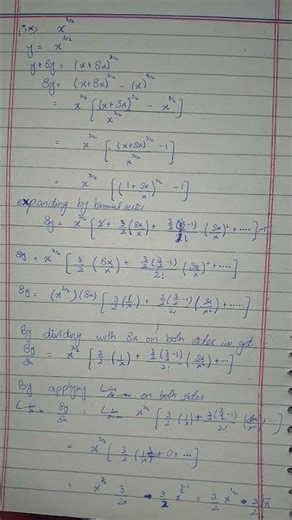 (ix) x^{3/2}
y = x^{3/2}
y+δy = (x+δx)^{3/2}
δy = (x+δx)^{3/2} - (x)^{3/2}
= x^{3/2} [ (x+δx)^{3/2} / x^{3/2} - x^{3/2} ]
= x^{3/2} [ (x+δx)^{3/2} / x^{3/2} - 1 ]
= x^{3/2} [ (1 + δx/x)^{3/2} - 1 ]
expanding by binomial series
δy = x^{3/2} [ 1 + 3/2 (δx/x) + 3/2(3/2-1)/2! (δx/x)² + ..... - 1
δy = x^{3/2} [ 3/2 (δx/x) + 3/2(3/2-1)/2! (δx/x)² + ..... ]
δy = (x^{3/2}) (δx) [ 3/2 (1/x) + 3/2(3/2-1)/2! (δx/x²) + ..... ]
By dividing with δx on both sides we get
δy/δx = x^{3/2} [ 3/2 (1/x) + 3/2(3/2-1)/2! (δx/x²) + ... ]
By applying Lim on both sides
Lim δy/δx = Lim x^{3/2} [ 3/2 (1/x) + 3/2(3/2-1)/2! (δx/x²) + ... ]
= x^{3/2} [ 3/2 (1/x) + 0 + ... ]
= x^{3/2} 3/2x → 3/2 x^{3/2-1} = 3/2 x^{1/2} → 3/2 √x